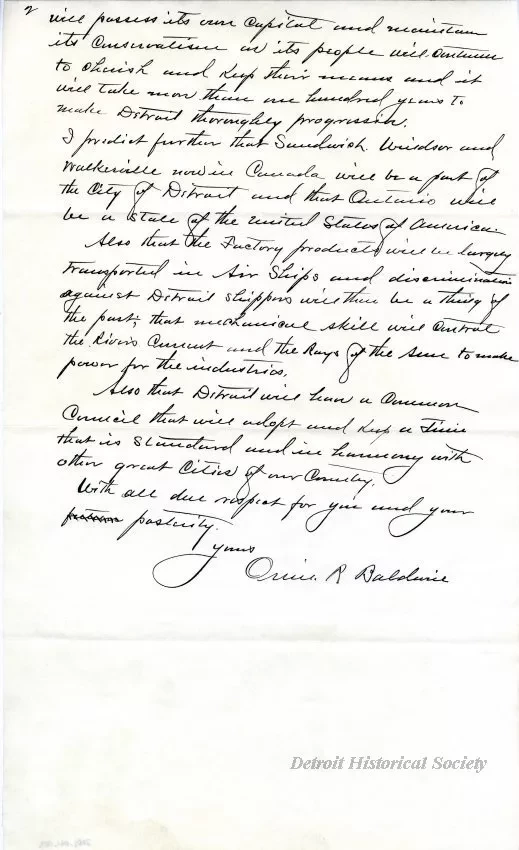 2
will possess its own Capital and maintain
its Conservatism as its people will Continue
to cherish and Keep their means and it
will take more than one hundred years to
make Detroit thoroughly progressive.
I predict further that Sandwich Windsor and
Walkerville now in Canada will be a part of
the City of Detroit and that Ontario will
be a state of the United States of America.
Also that the Factory products will be largely
transported in Air Ships and discrimination
against Detroit shippers will then be a thing of
the past, that mechanical skill will Control
the Rivers Current and the Rays of the Sun to make
power for the industries.
Also that Detroit will have a Common
Council that will adopt and Keep a Time
that is Standard and in harmony with
other great Cities of our Country.
With all due respect for you and your
posterity.
Yours
R Baldwin
Detroit Historical Society